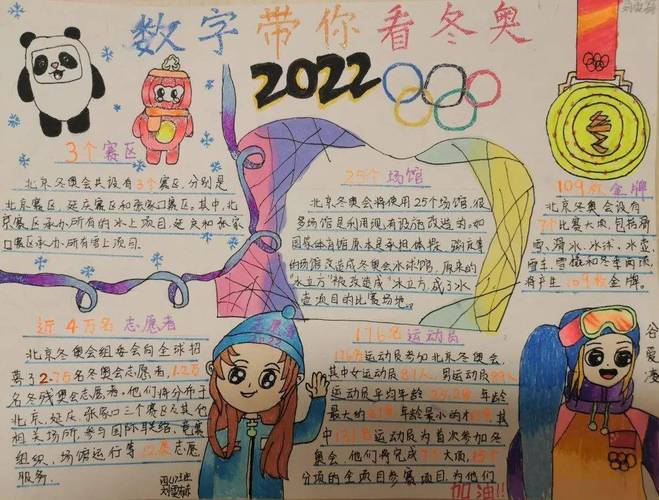 数字带你看冬奥
2022
3个赛区
北京冬奥会共设有3个赛区,分别是
北京赛区、延庆赛区和张家口赛区。其中,北
京赛区承办所有的冰上项目,延庆和张家
口赛区承办所有雪上项目。
25个场馆
北京冬奥会将使用25个场馆,很
多场馆是利用现有设施改造的。如
国家体育馆原本是承担体操、
的场馆改造成冬奥会冰球馆,原来的
“水立方”被改造成“冰立方”,成了冰
壶项目的比赛场地。
109枚金牌
北京冬奥会设有
7个比赛大项,包括滑
雪、滑冰、冰球、冰壶、
雪车、雪橇和冬季两项,
将产生109枚金牌。
近4万名志愿者
北京冬奥会组委会向全球招
募了2.7万名冬奥会志愿者,1.2万
名冬残奥会志愿者,他们将分布于
北京、延庆、张家口三个赛区及其他
相关场所,参与国际联络、竞赛
组织、场馆运行等12类志愿
服务。
志愿者
2022
176名运动员
176名运动员参加北京冬奥会,
其中女运动员87人,男运动员89人,
运动员平均年龄25.2岁,年龄
最大的 年龄最小的
中131名运动员为首次参加冬
奥会,他们将完成7个大项,15个
分项的全项目参赛项目,为他们
加油!!
谷
爱
凌